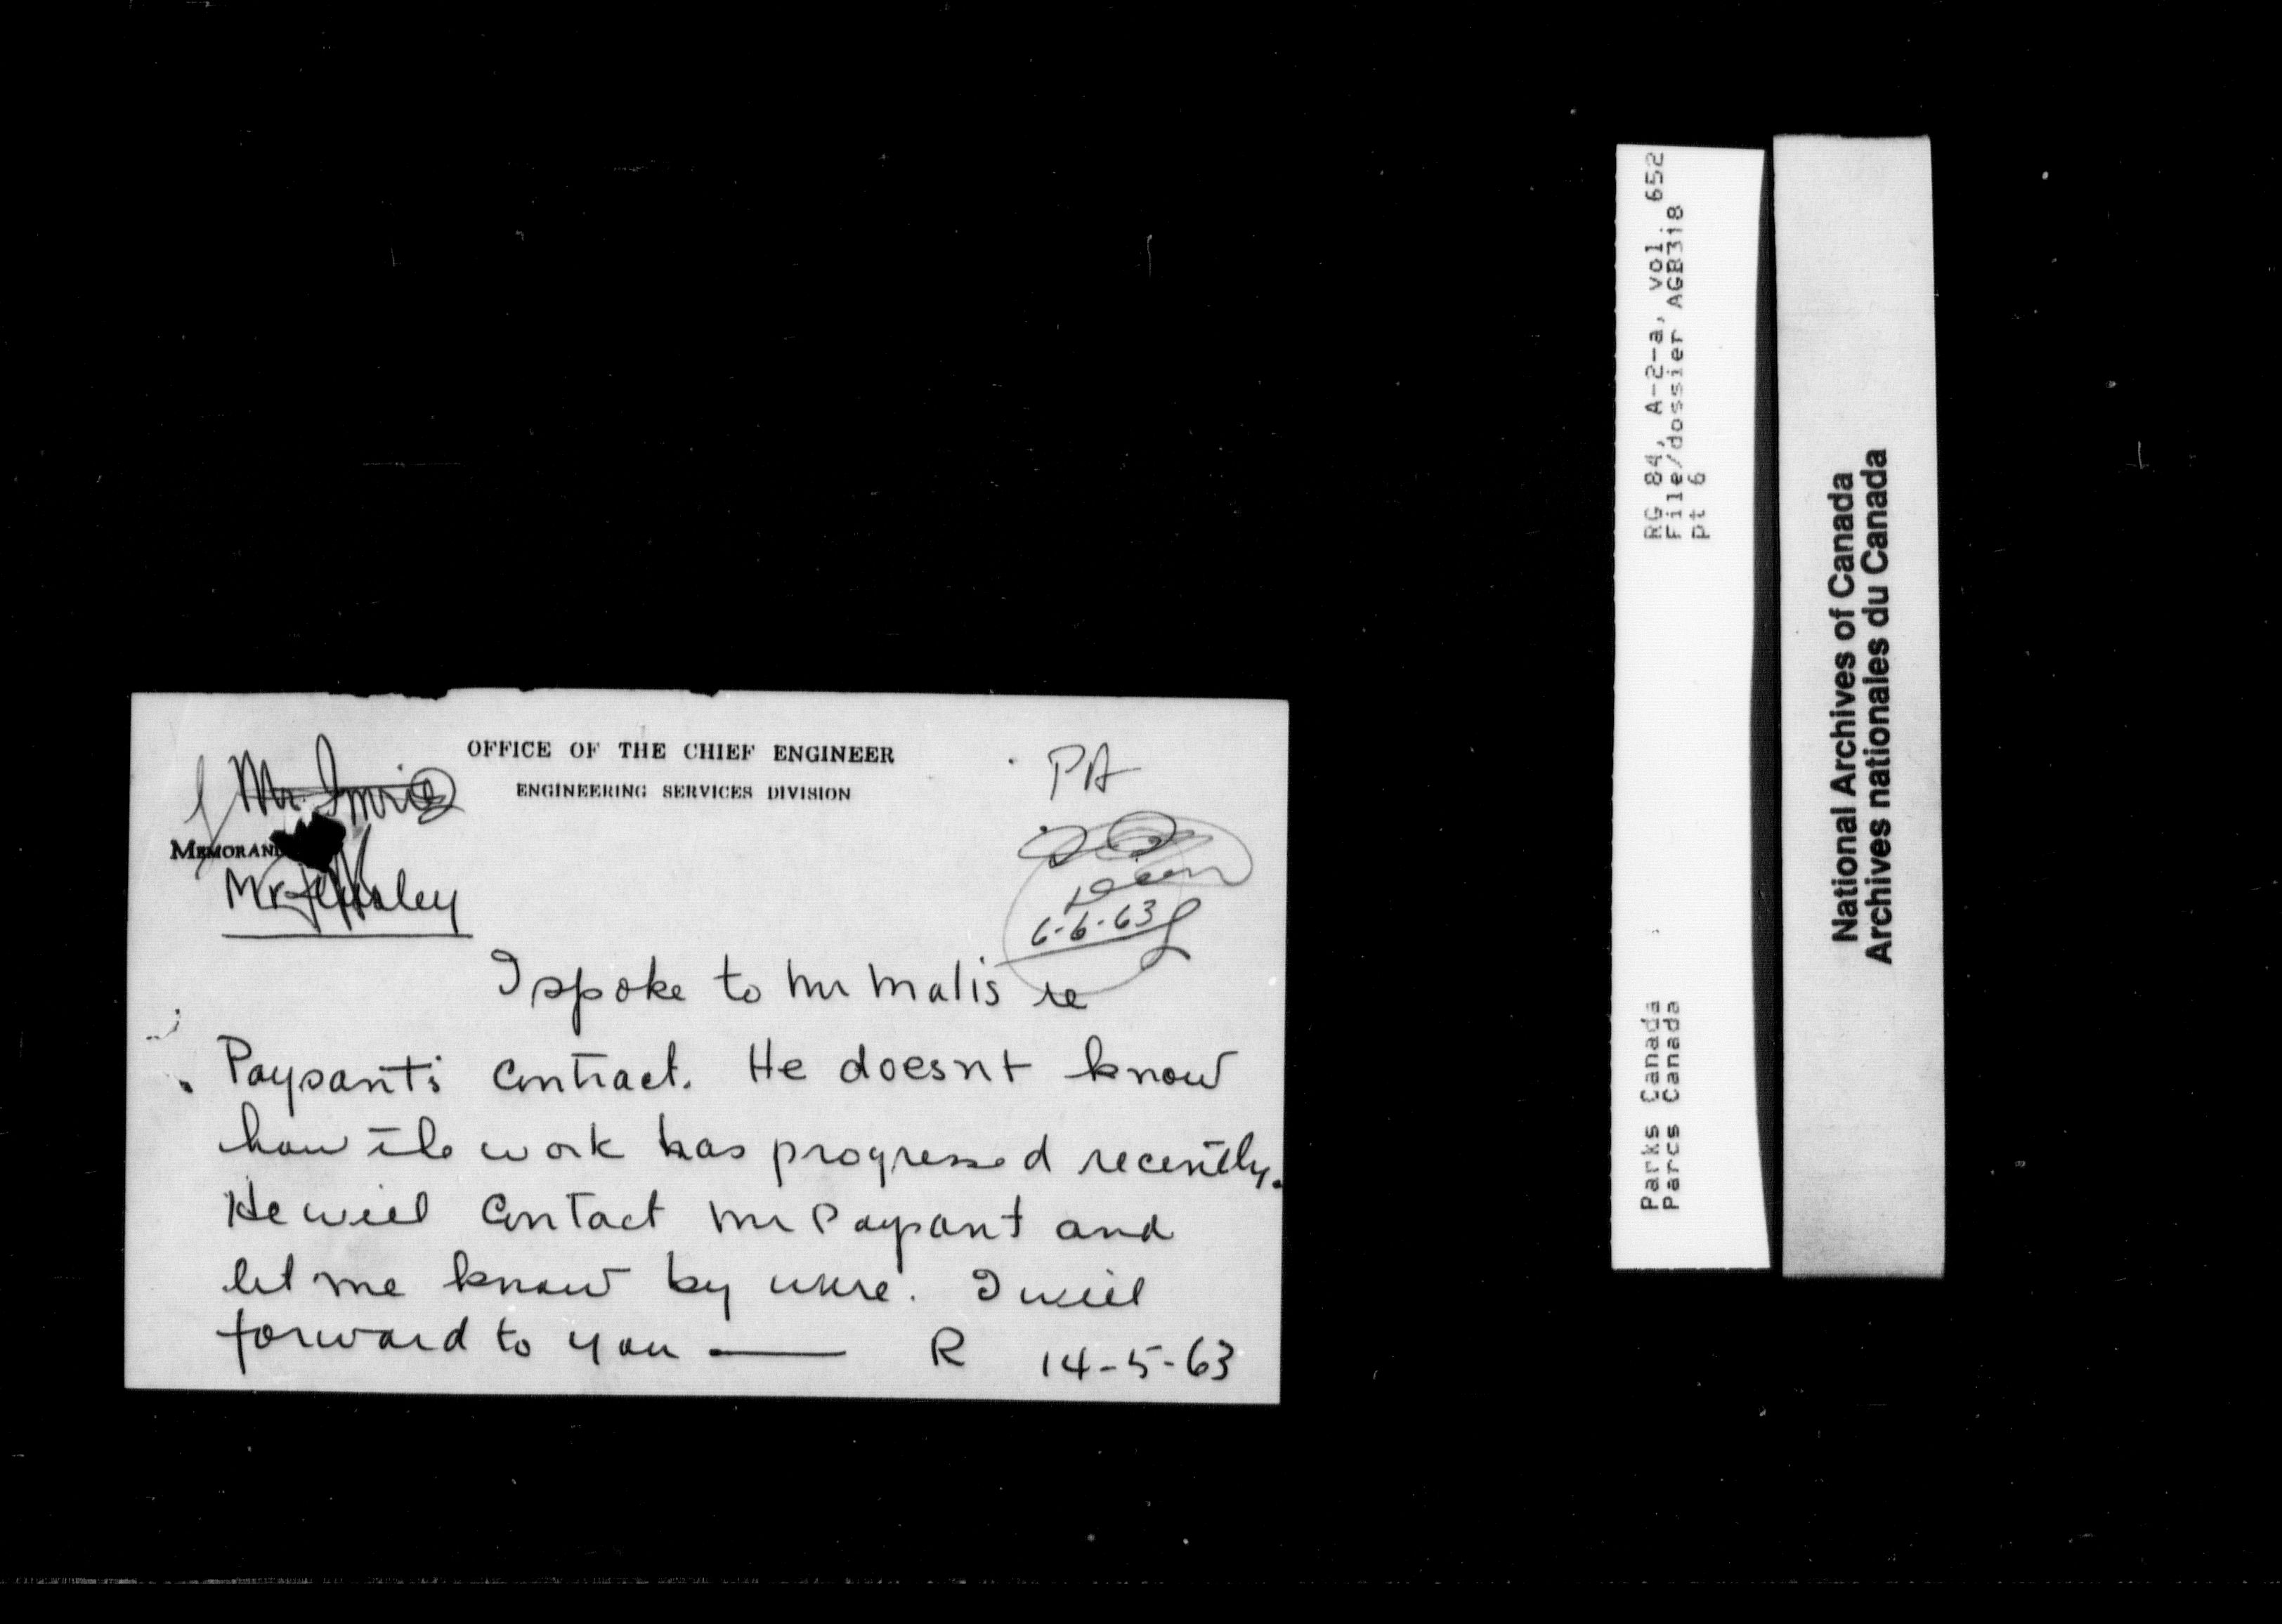 OFFICE OF THE CHIEF ENGINEER
ENGINEERING SERVICES DIVISION
PA
Mr. Imrie
MEMORAN
Mr.
6-6-63
I spoke to Mr Malis re
Paysant's contract. He doesnt know
how the work has progressed recently.
He will contact Mr Paysant and
let me know by wire. I will
forward to you — R 14-5-63
RG 84, A-2-a, vol. 652
File/dossier AGB318
pt 6
Parks Canada
Parcs Canada
National Archives of Canada
Archives nationales du Canada